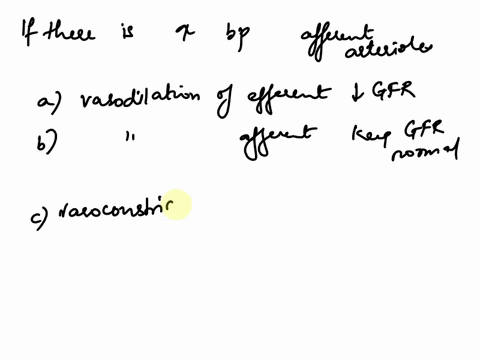 If there is x bp afferent arterioles
a) vasodilation of efferent ↓ GFR
b) " afferent keep GFR normal
c) vasoconstric